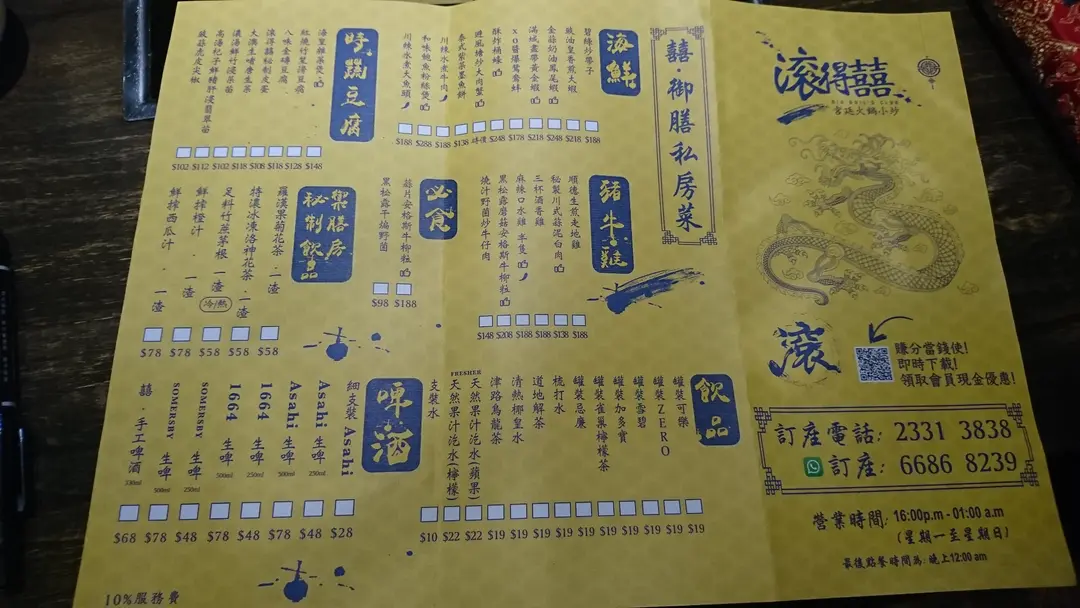 滾得囍
宮廷火鍋小炒
滾
賺分當錢使!
即時下載!
領取會員現金優惠!
訂座電話: 2331 3838
訂座: 6686 8239
營業時間: 16:00p.m - 01:00 a.m
(星期一至星期日)
最後點餐時間為: 晚上12:00 am
囍·御膳私房菜
海鮮
豉油皇香煎大蝦
金蒜奶油鳳尾蝦
滿城盡帶黃金蝦
酥炸桶蠔
避風塘炒大肉蟹
泰式紫菜墨魚餅
川辣水煮牛肉
川辣水煮大魚頭
$188
$218
$248
$218
$178
$248
時價
$138
$188
$288
$188
時蔬豆腐
海皇雜菜煲
八味金磚豆腐
濃湯鮮竹浸菜苗
豉蒜虎皮尖椒
$148
$128
$118
$108
$118
$102
$112
$102
豬牛雞
順德生煎走地雞
秘製川式蒜泥白肉
三杯酒香雞
麻辣口水雞 半隻
黑松露蘑菇安格斯牛柳粒
燒汁野菌炒牛仔肉
$188
$138
$188
$188
$208
$148
必食
蒜片安格斯牛柳粒
黑松露干煸野菌
$188
$98
藥膳房
秘制飲品
羅漢果菊花茶·一渣
特濃冰凍洛神花茶·一渣
足料竹蔗茅根·一渣
冷/熱
鮮搾橙汁·一渣
鮮搾西瓜汁·一渣
$58
$58
$58
$78
$78
飲品
罐裝可樂
罐裝ZERO
罐裝雪碧
罐裝加多寶
罐裝雀巢檸檬茶
罐裝忌廉
梳打水
道地解茶
清熱椰皇水
津路烏龍茶
FRESHER
天然果汁汽水(蘋果)
天然果汁汽水(檸檬)
支裝水
$19
$19
$19
$19
$19
$19
$19
$19
$19
$19
$22
$22
$10
啤酒
細支裝 Asahi
Asahi 生啤 250ml
Asahi 生啤 500ml
1664 生啤 250ml
1664 生啤 500ml
SOMERSBY 生啤 250ml
SOMERSBY 生啤 500ml
囍·手工啤酒 330ml
$28
$48
$78
$48
$78
$48
$78
$68
10%服務費